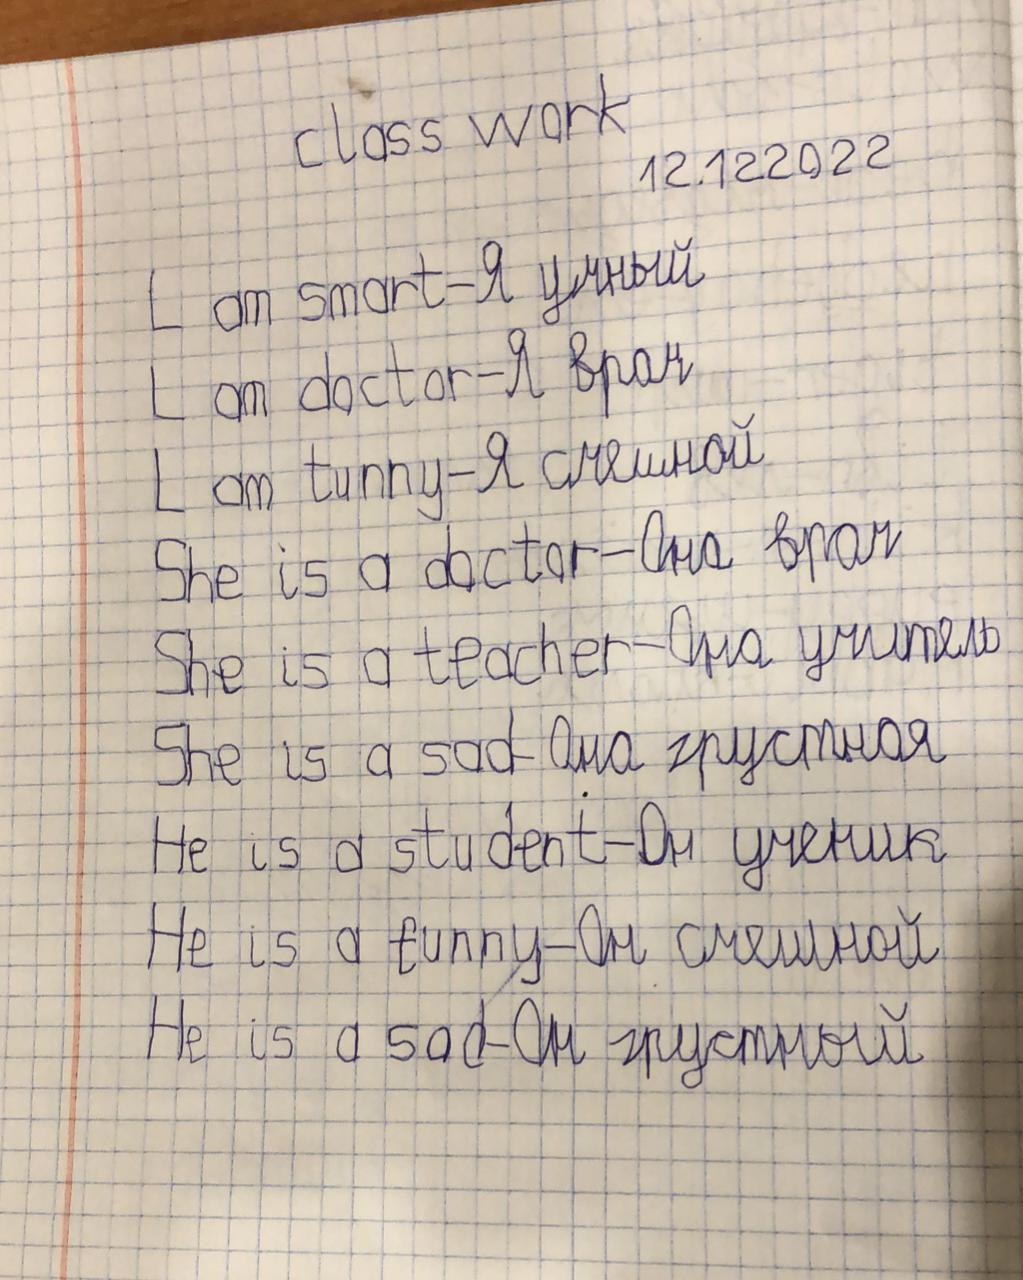 class work
12.122022
L am smart-Я умный
L am doctor-Я врач
L am tunny-Я смешной
She is a doctor-Она врач
She is a teacher-Она учитель
She is a sad-Она грустная
He is a student-Он ученик
He is a funny-Он смешной
He is a sad-Он грустный